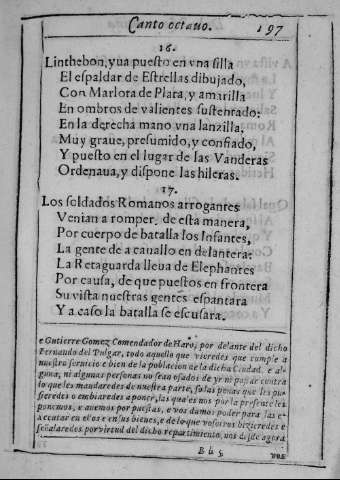 Canto octauo. 197
16.
Linthebon, yua puesto en vna silla
El espaldar de Estrellas dibujado,
Con Marlota de Plata, y amarilla
En ombros de valientes sustentado:
En la derecha mano vna lanzilla,
Muy graue, presumido, y confiado,
Y puesto en el lugar de las Vanderas
Ordenaua, y dispone las hileras.
17.
Los soldados Romanos arrogantes
Venian a romper, de esta manera,
Por cuerpo de batalla los Infantes,
La gente de a cauallo en delantera:
La Retaguarda lleua de Elephantes
Por causa, de que puestos en frontera
Su vista nuestras gentes espantara
Y a caso la batalla se escusara.
e Gutierre Gomez Comendador de Haro, por delante del dicho
Fernando del Pulgar, todo aquello que vieredes que cumple a
nuestro seruicio e bien de la poblacion de la dicha Ciudad. e al-
gunas, ni algunas personas no sean osados de yr ni pasar contra
lo que les mandaredes de nuestra parte, so las penas que les pu-
sieredes o embiaredes a poner, las quales nos por la presente les
ponemos, e auemos por puestas, e vos damos poder para las e-
xecutar en ellos e en sus bienes, e de lo que vosotros hizieredes e
señalaredes por virtud del dicho repartimiento, nos desde agora
B b 5 vos